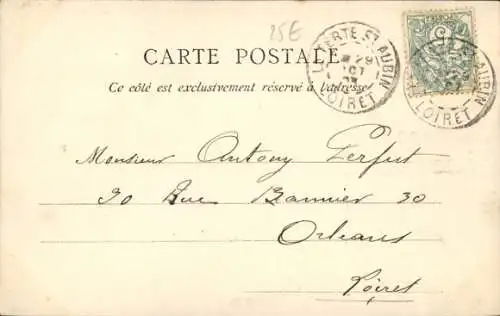 25E
LA FERTE ST AUBIN
29
OCT
LOIRET
CARTE POSTALE
Ce côté est exclusivement réservé à l'adresse
Monsieur Antony Perfut
30 Rue Bannier 30
Orléans
Loiret